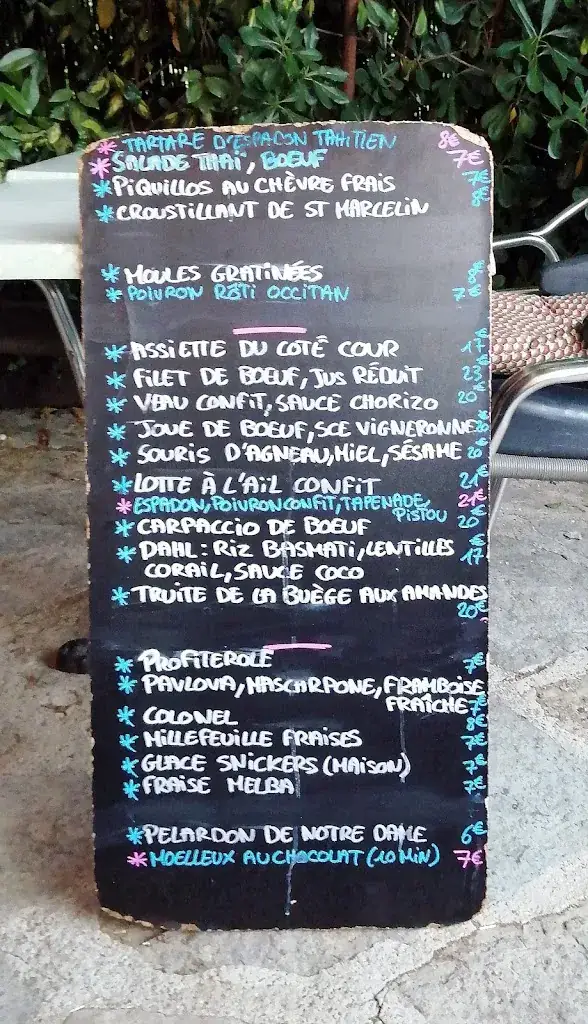 * TARTARE D'ESPADON TAHITIEN 8€
* SALADE THAÏ, BOEUF 7€
* PIQUILLOS AU CHÈVRE FRAIS 7€
* CROUSTILLANT DE ST MARCELIN 8€
* MOULES GRATINÉES 8€
* POIVRON RÔTI OCCITAN 7€
* ASSIETTE DU COTÉ COUR 17€
* FILET DE BOEUF, JUS RÉDUIT 23€
* VEAU CONFIT, SAUCE CHORIZO 20€
* JOUE DE BOEUF, SCE VIGNERONNE 20€
* SOURIS D'AGNEAU, MIEL, SÉSAME 20€
* LOTTE À L'AIL CONFIT 21€
* ESPADON, POIVRON CONFIT, TAPENADE, 21€
PISTOU
* CARPACCIO DE BOEUF 20€
* DAHL: RIZ BASMATI, LENTILLES 17€
CORAIL, SAUCE COCO
* TRUITE DE LA BUÈGE AUX AMANDES
20€
* PROFITEROLE 7€
* PAVLOVA, MASCARPONE, FRAMBOISE
FRAÎCHE 7€
* COLONEL 8€
* MILLEFEUILLE FRAISES 7€
* GLACE SNICKERS (MAISON) 7€
* FRAISE MELBA 7€
* PELARDON DE NOTRE DAME 6€
* MOELLEUX AU CHOCOLAT (10 MIN) 7€